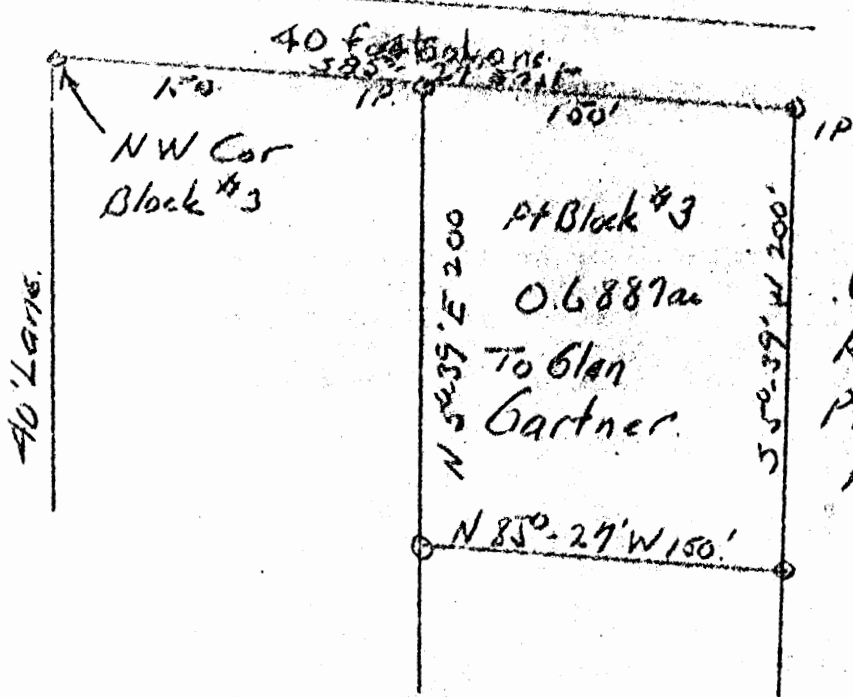 40 foot Lane.
S 85°- 27' E
150'
IP
150'
IP
NW Cor
Block #3
40' Lane.
N 5°-39' E 200
Pt Block #3
0.6887 ac
To Glen
Gartner.
S 5°-39' W 200'
N 85°-27' W 150'